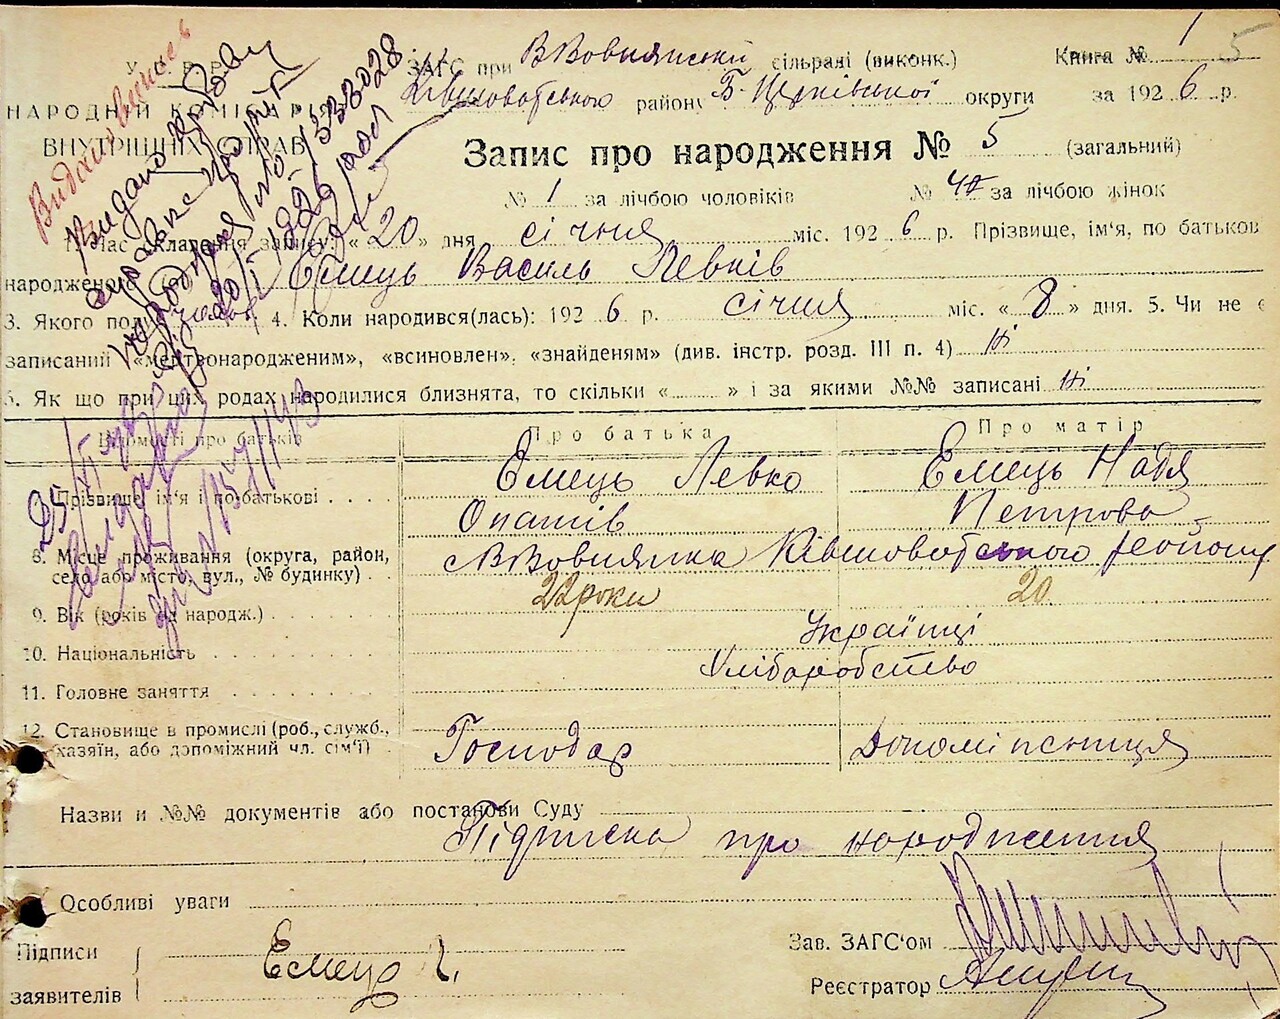 У.С.Р.Р.
НАРОДНІЙ КОМІСАРІЯТ
ВНУТРІШНІХ СПРАВ
ЗАГС при ВВовнянській сільраді (виконк.)
Ківшоватського району Б-Церківської округи
Книга № 1
5
за 1926 р.
Запис про народження № 5 (загальний)
№ 1 за лічбою чоловіків № 4 за лічбою жінок
1. Час складення запису: «20» дня січня міс. 1926 р. Прізвище, ім'я, по батьков
народженого Ємець Василь Левків
3. Якого полу 4. Коли народився(лась): 1926 р. січня міс. «8» дня. 5. Чи не є
записаний «мертвонародженим», «всиновлен», «знайденям» (див. інстр. розд. III п. 4) Ні
6. Як що при цих родах народилися близнята, то скільки «......» і за якими №№ записані Ні
Відомості про батьків Про батька Про матір
Прізвище, ім'я і по батькові Ємець Левко Ємець Надя
Опатів Петрова
8. Місце проживання (округа, район, село або місто, вул., № будинку) с ВВовнянка Ківшоватського району
9. Вік (років од народж.) 22 роки 20
10. Національність Українці
11. Головне заняття Хліборобство
12. Становище в промислі (роб., службу., хазяїн, або допоміжний чл. сім'ї) Господар Допоміжниця
Назви и №№ документів або постанови Суду
Підписка про народження
Особливі уваги
Підписи
заявителів Ємець Л.
Зав. ЗАГС'ом
Реєстратор
Видано виписку
Видано
№ 1533028